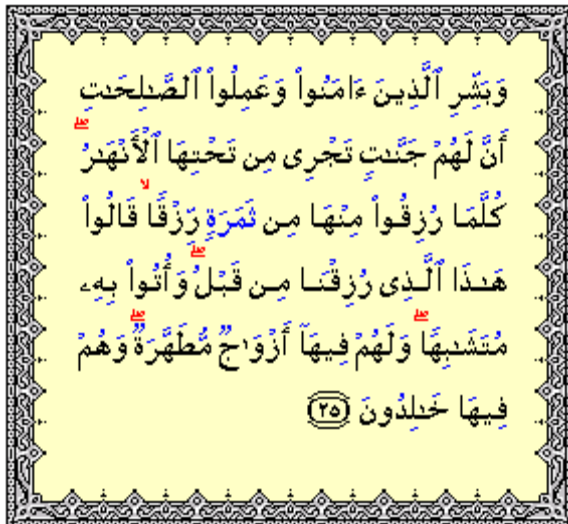 وَبَشِّرِ ٱلَّذِينَ ءَامَنُوا۟ وَعَمِلُوا۟ ٱلصَّـٰلِحَـٰتِ
أَنَّ لَهُمْ جَنَّـٰتٍ تَجْرِى مِن تَحْتِهَا ٱلْأَنْهَـٰرُ ۖ
كُلَّمَا رُزِقُوا۟ مِنْهَا مِن ثَمَرَةٍ رِّزْقًا ۙ قَالُوا۟
هَـٰذَا ٱلَّذِى رُزِقْنَا مِن قَبْلُ ۖ وَأُتُوا۟ بِهِۦ
مُتَشَـٰبِهًا ۖ وَلَهُمْ فِيهَآ أَزْوَٰجٌ مُّطَهَّرَةٌ ۖ وَهُمْ
فِيهَا خَـٰلِدُونَ ﴿٢٥﴾